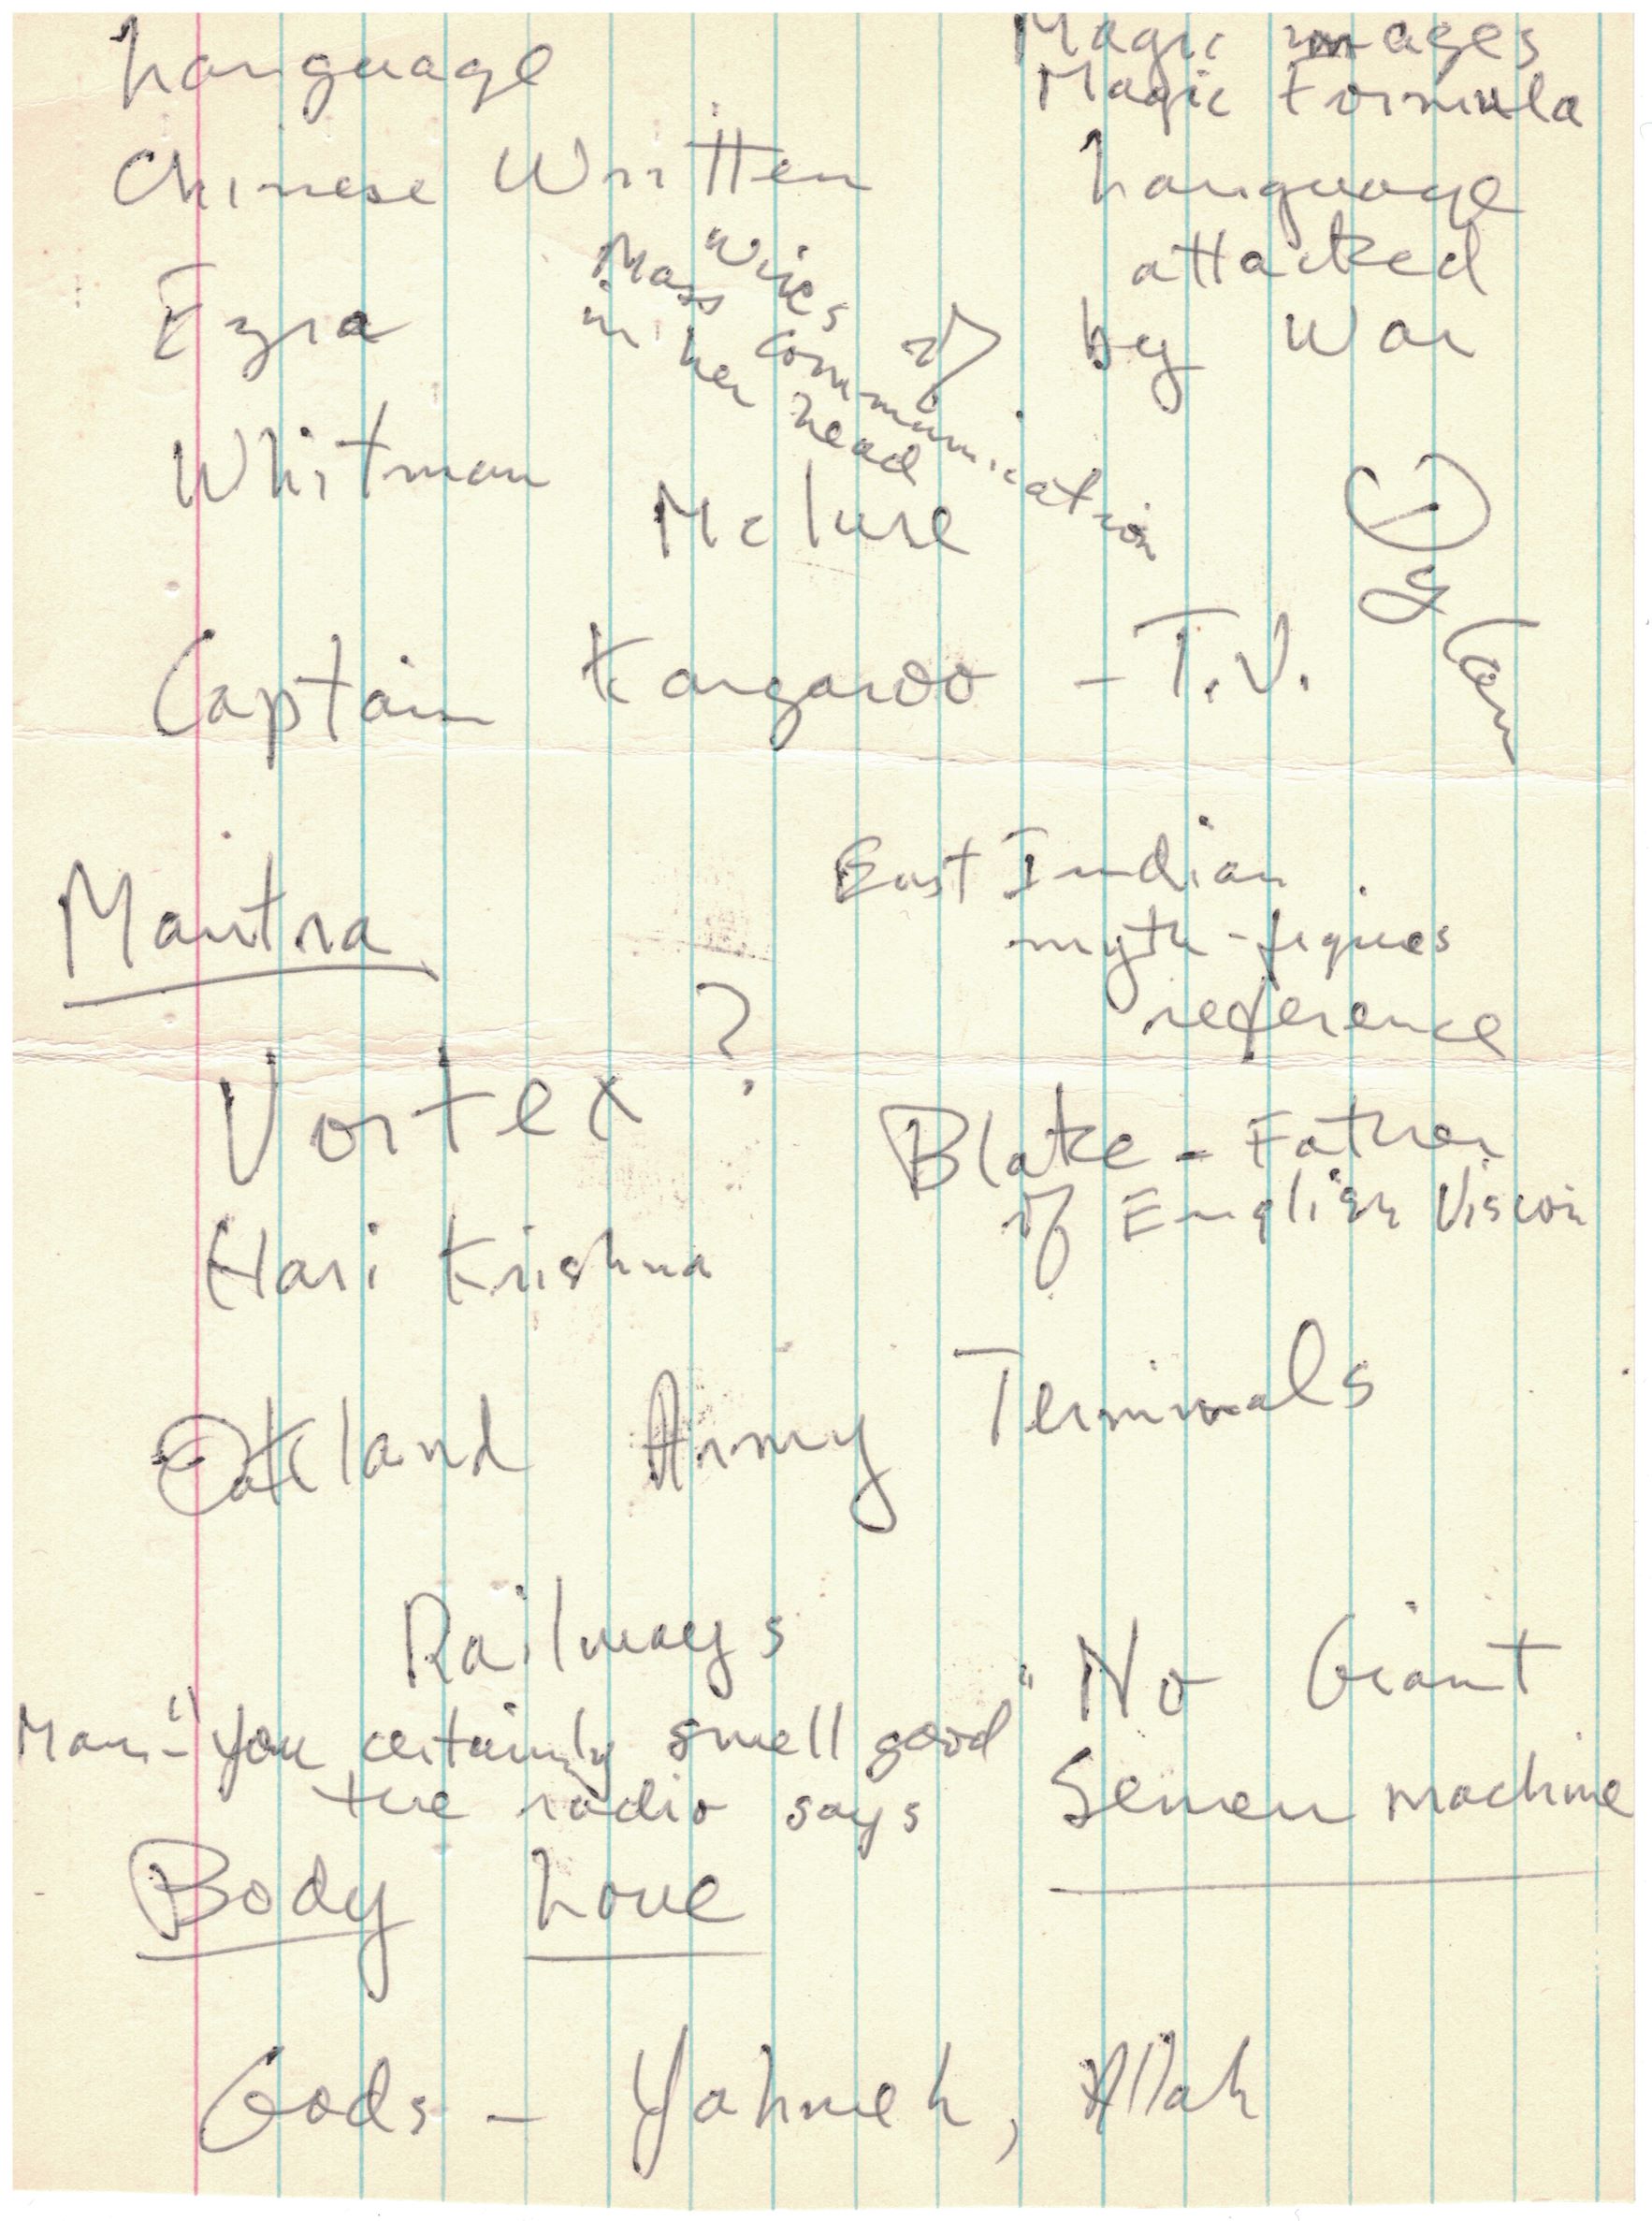 Language
Magic images
Magic Formula
Chinese Written
Language
attacked
by War
Ezra
Wires of
Mass Communication
in her head
Whitman
McLure
Captain Kangaroo - T.V.
Mantra
East Indian
myth-figures
reference
Vortex?
Blake - Father
of English Vision
Hari Krishna
Oakland Army Terminals
Railways
"No Giant
Semen machine
Man - "you certainly smell good"
the radio says
Body Love
Gods - Yahweh, Allah